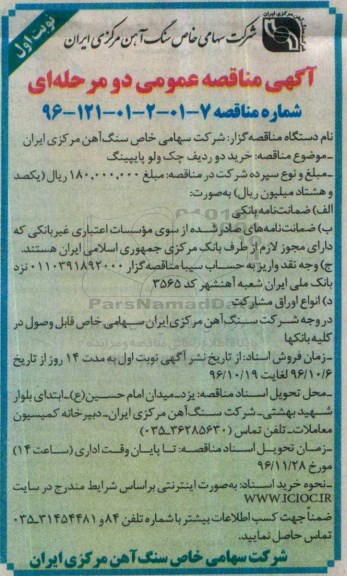 نوبت اول
شرکت سهامی خاص سنگ آهن مرکزی ایران
آگهی مناقصه عمومی دو مرحله‌ای
شماره مناقصه ۷-۰۱-۲-۰۱-۱۲۱-۹۶
نام دستگاه مناقصه گزار: شرکت سهامی خاص سنگ‌آهن مرکزی ایران
-موضوع مناقصه: خرید دو ردیف چک ولو پایپینگ
-مبلغ و نوع سپرده شرکت در مناقصه: مبلغ ۱۸۰,۰۰۰,۰۰۰ ریال (یکصد
و هشتاد میلیون ریال) به‌صورت:
الف) ضمانت‌نامه بانکی
ب) ضمانت‌نامه‌های صادر شده از سوی مؤسسات اعتباری غیربانکی که
دارای مجوز لازم از طرف بانک مرکزی جمهوری اسلامی ایران هستند.
ج) وجه نقد واریز به حساب سیبا مناقصه‌گزار ۰۱۱۰۳۹۱۸۹۲۰۰۰ نزد
بانک ملی ایران شعبه آهنشهر کد ۳۵۶۵
د) انواع اوراق مشارکت
در وجه شرکت سنگ‌آهن مرکزی ایران سهامی خاص قابل وصول در
کلیه بانکها
-زمان فروش اسناد: از تاریخ نشر آگهی نوبت اول به مدت ۱۴ روز از تاریخ
۹۶/۱۰/۶ لغایت ۹۶/۱۰/۱۹
-محل تحویل اسناد مناقصه: یزد-میدان امام حسین(ع)-ابتدای بلوار
شهید بهشتی- شرکت سنگ آهن مرکزی ایران-دبیرخانه کمیسیون
معاملات- تلفن تماس (۳۶۲۸۵۶۳۰-۰۳۵)
-زمان تحویل اسناد مناقصه: تا پایان وقت اداری (ساعت ۱۴)
مورخ ۹۶/۱۱/۲۸
-نحوه خرید اسناد: به‌صورت اینترنتی براساس شرایط مندرج در سایت
WWW.ICIOC.IR
ضمناً جهت کسب اطلاعات بیشتر با شماره تلفن ۸۴ و ۳۱۴۵۴۴۸۱-۰۳۵
تماس حاصل نمایید.
شرکت سهامی خاص سنگ آهن مرکزی ایران